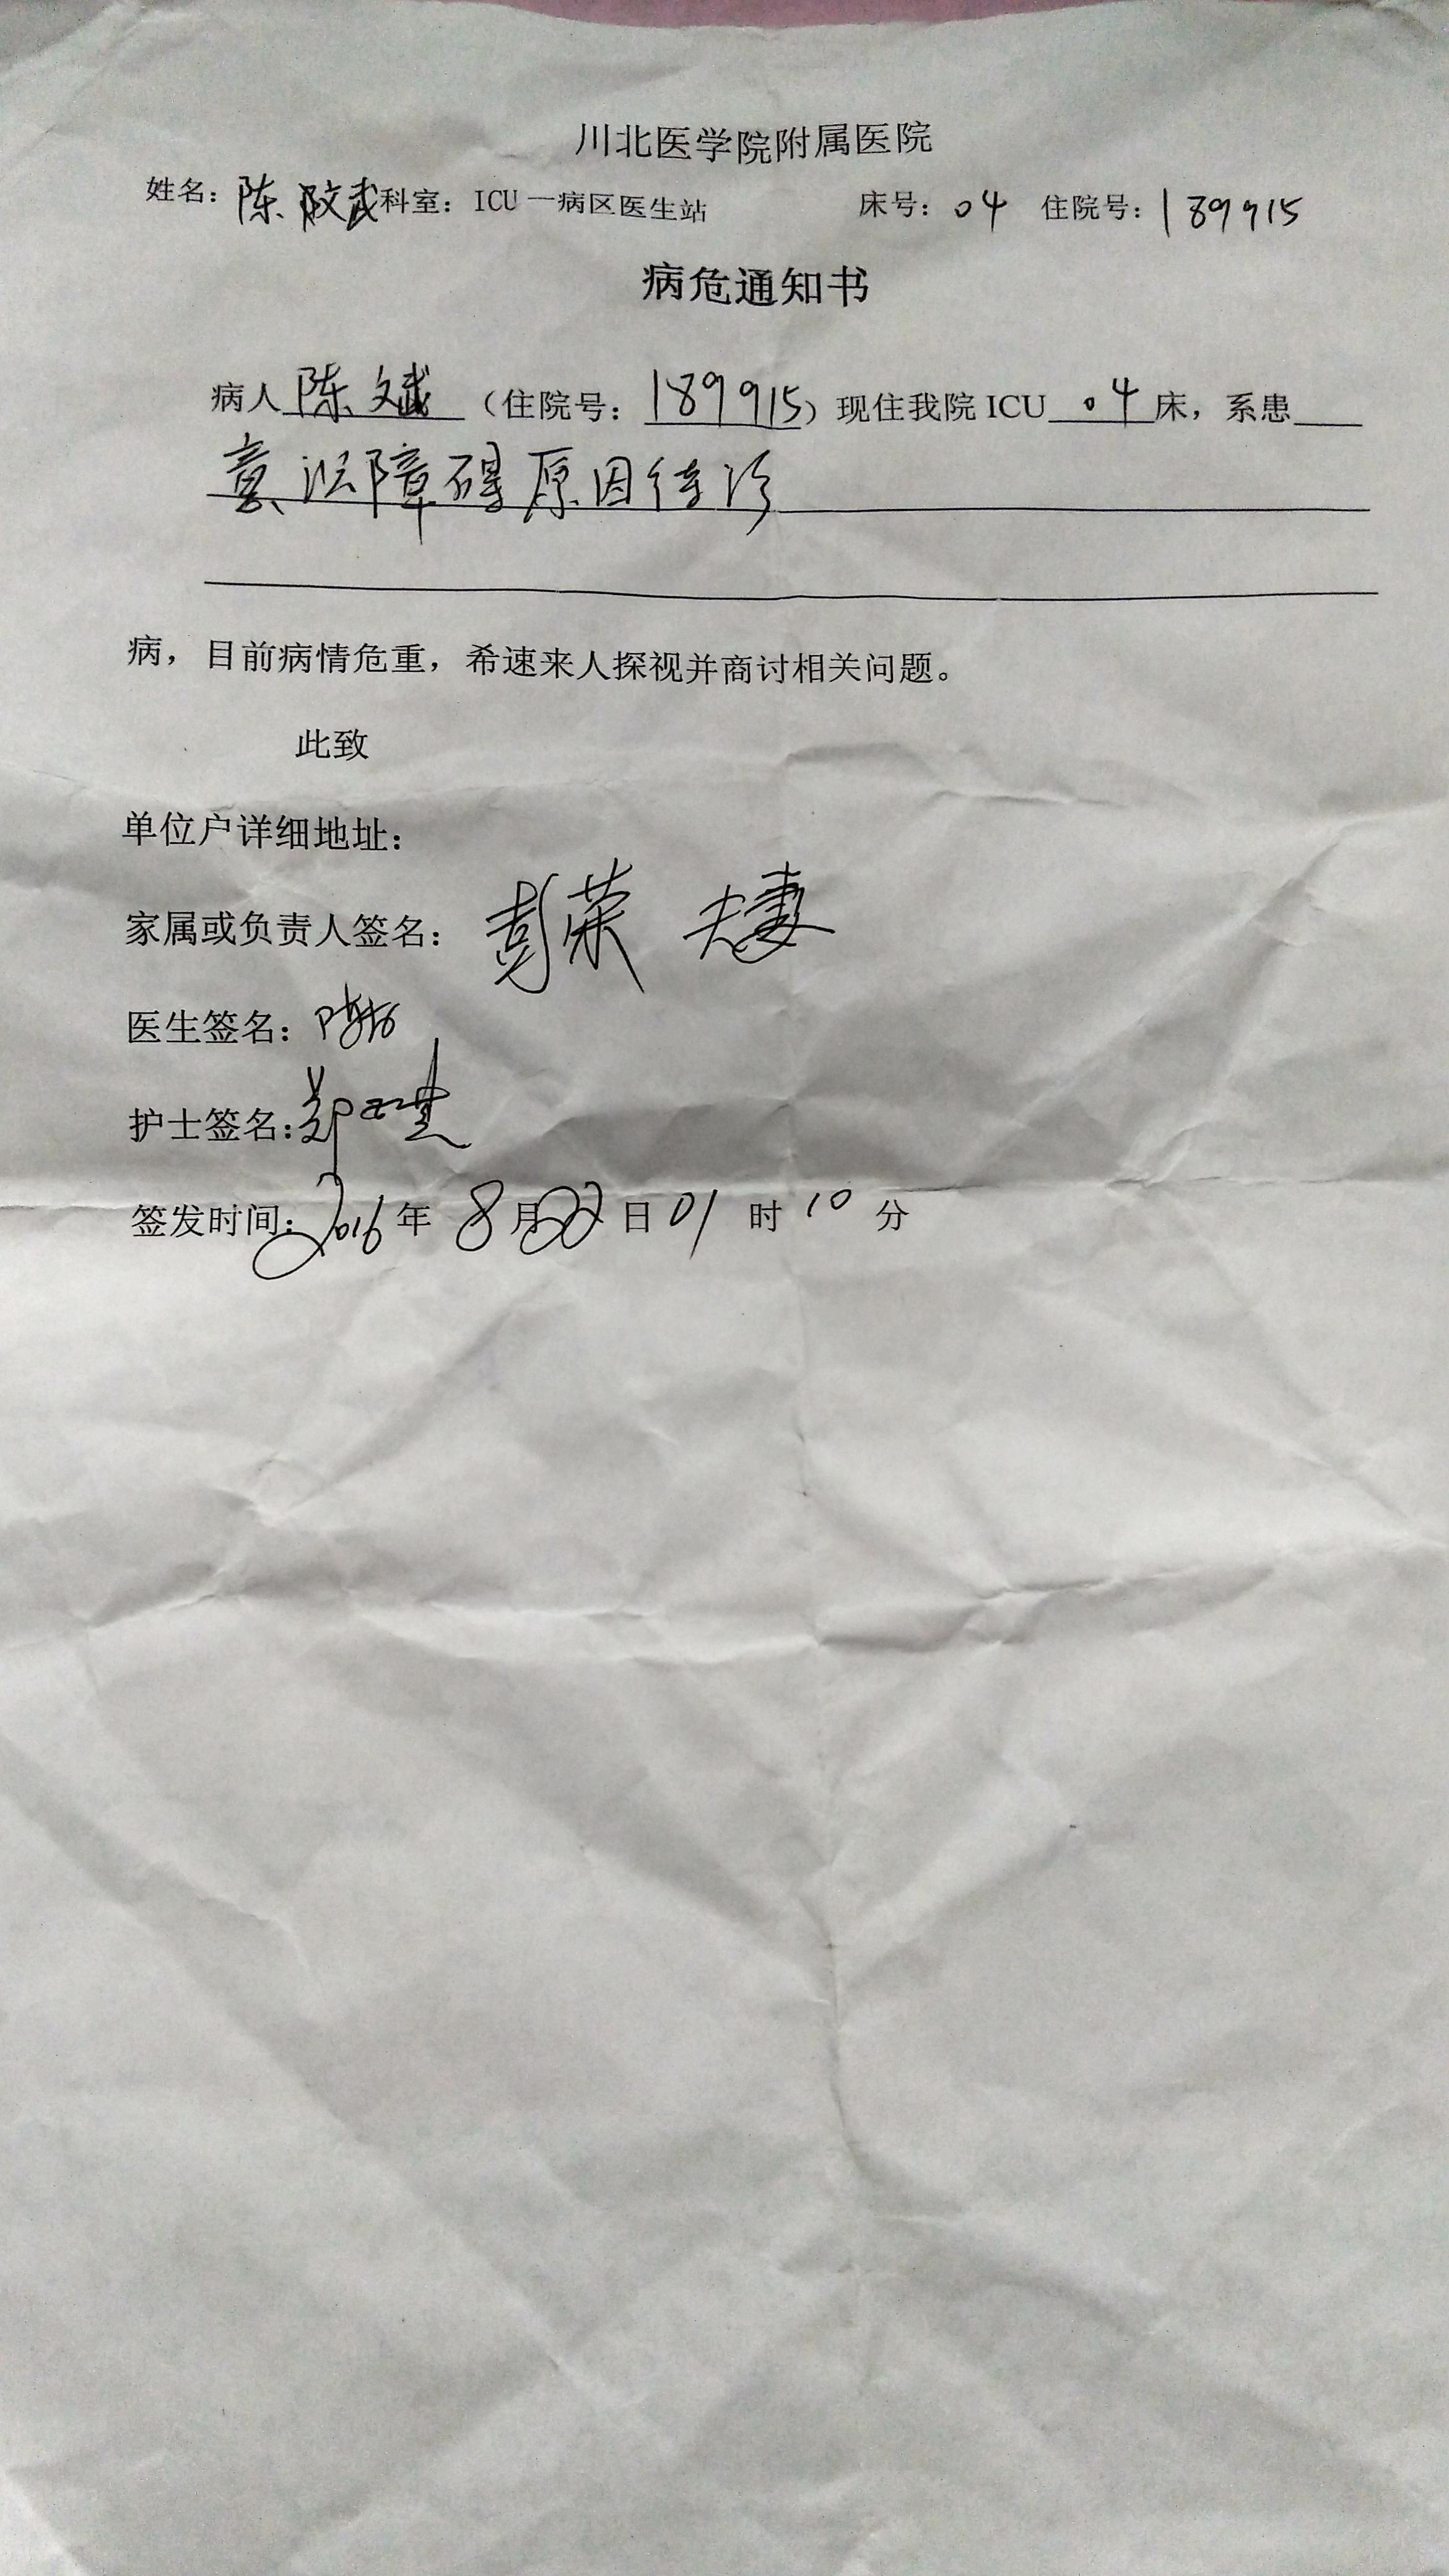 川北医学院附属医院
姓名：陈文斌科室：ICU一病区医生站 床号：04 住院号：189915
病危通知书
病人陈文斌（住院号：189915）现住我院ICU 04床，系患
意识障碍原因待诊
病，目前病情危重，希速来人探视并商讨相关问题。
此致
单位户详细地址：
家属或负责人签名：彭荣 夫妻
医生签名：
护士签名：郑
签发时间：2016年8月22日01时10分